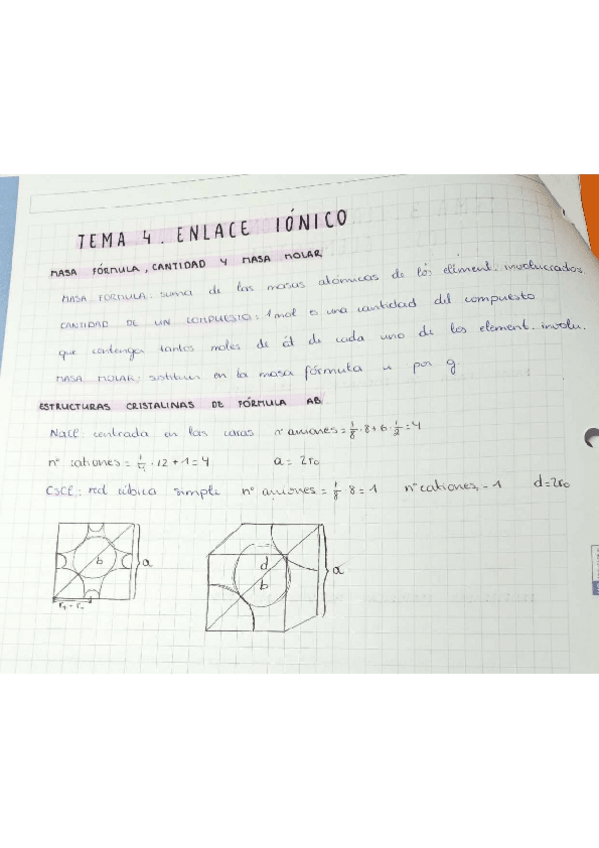 TEMA 4. ENLACE IÓNICO
MASA FÓRMULA, CANTIDAD Y MASA MOLAR
MASA FORMULA: suma de las masas atómicas de los element. involucrados.
CANTIDAD DE UN COMPUESTO: 1 mol es una cantidad del compuesto
que contenga tantos moles de át de cada uno de los element. involu.
MASA MOLAR: sustituir en la masa fórmula u por g
ESTRUCTURAS CRISTALINAS DE FÓRMULA AB
NaCl: centrada en las caras nº aniones = 1/8 · 8 + 6 · 1/2 = 4
nº cationes = 1/4 · 12 + 1 = 4 a = 2r₀
CsCl: red cúbica simple nº aniones = 1/8 · 8 = 1 nº cationes = 1 d = 2r₀
b a
d
b a